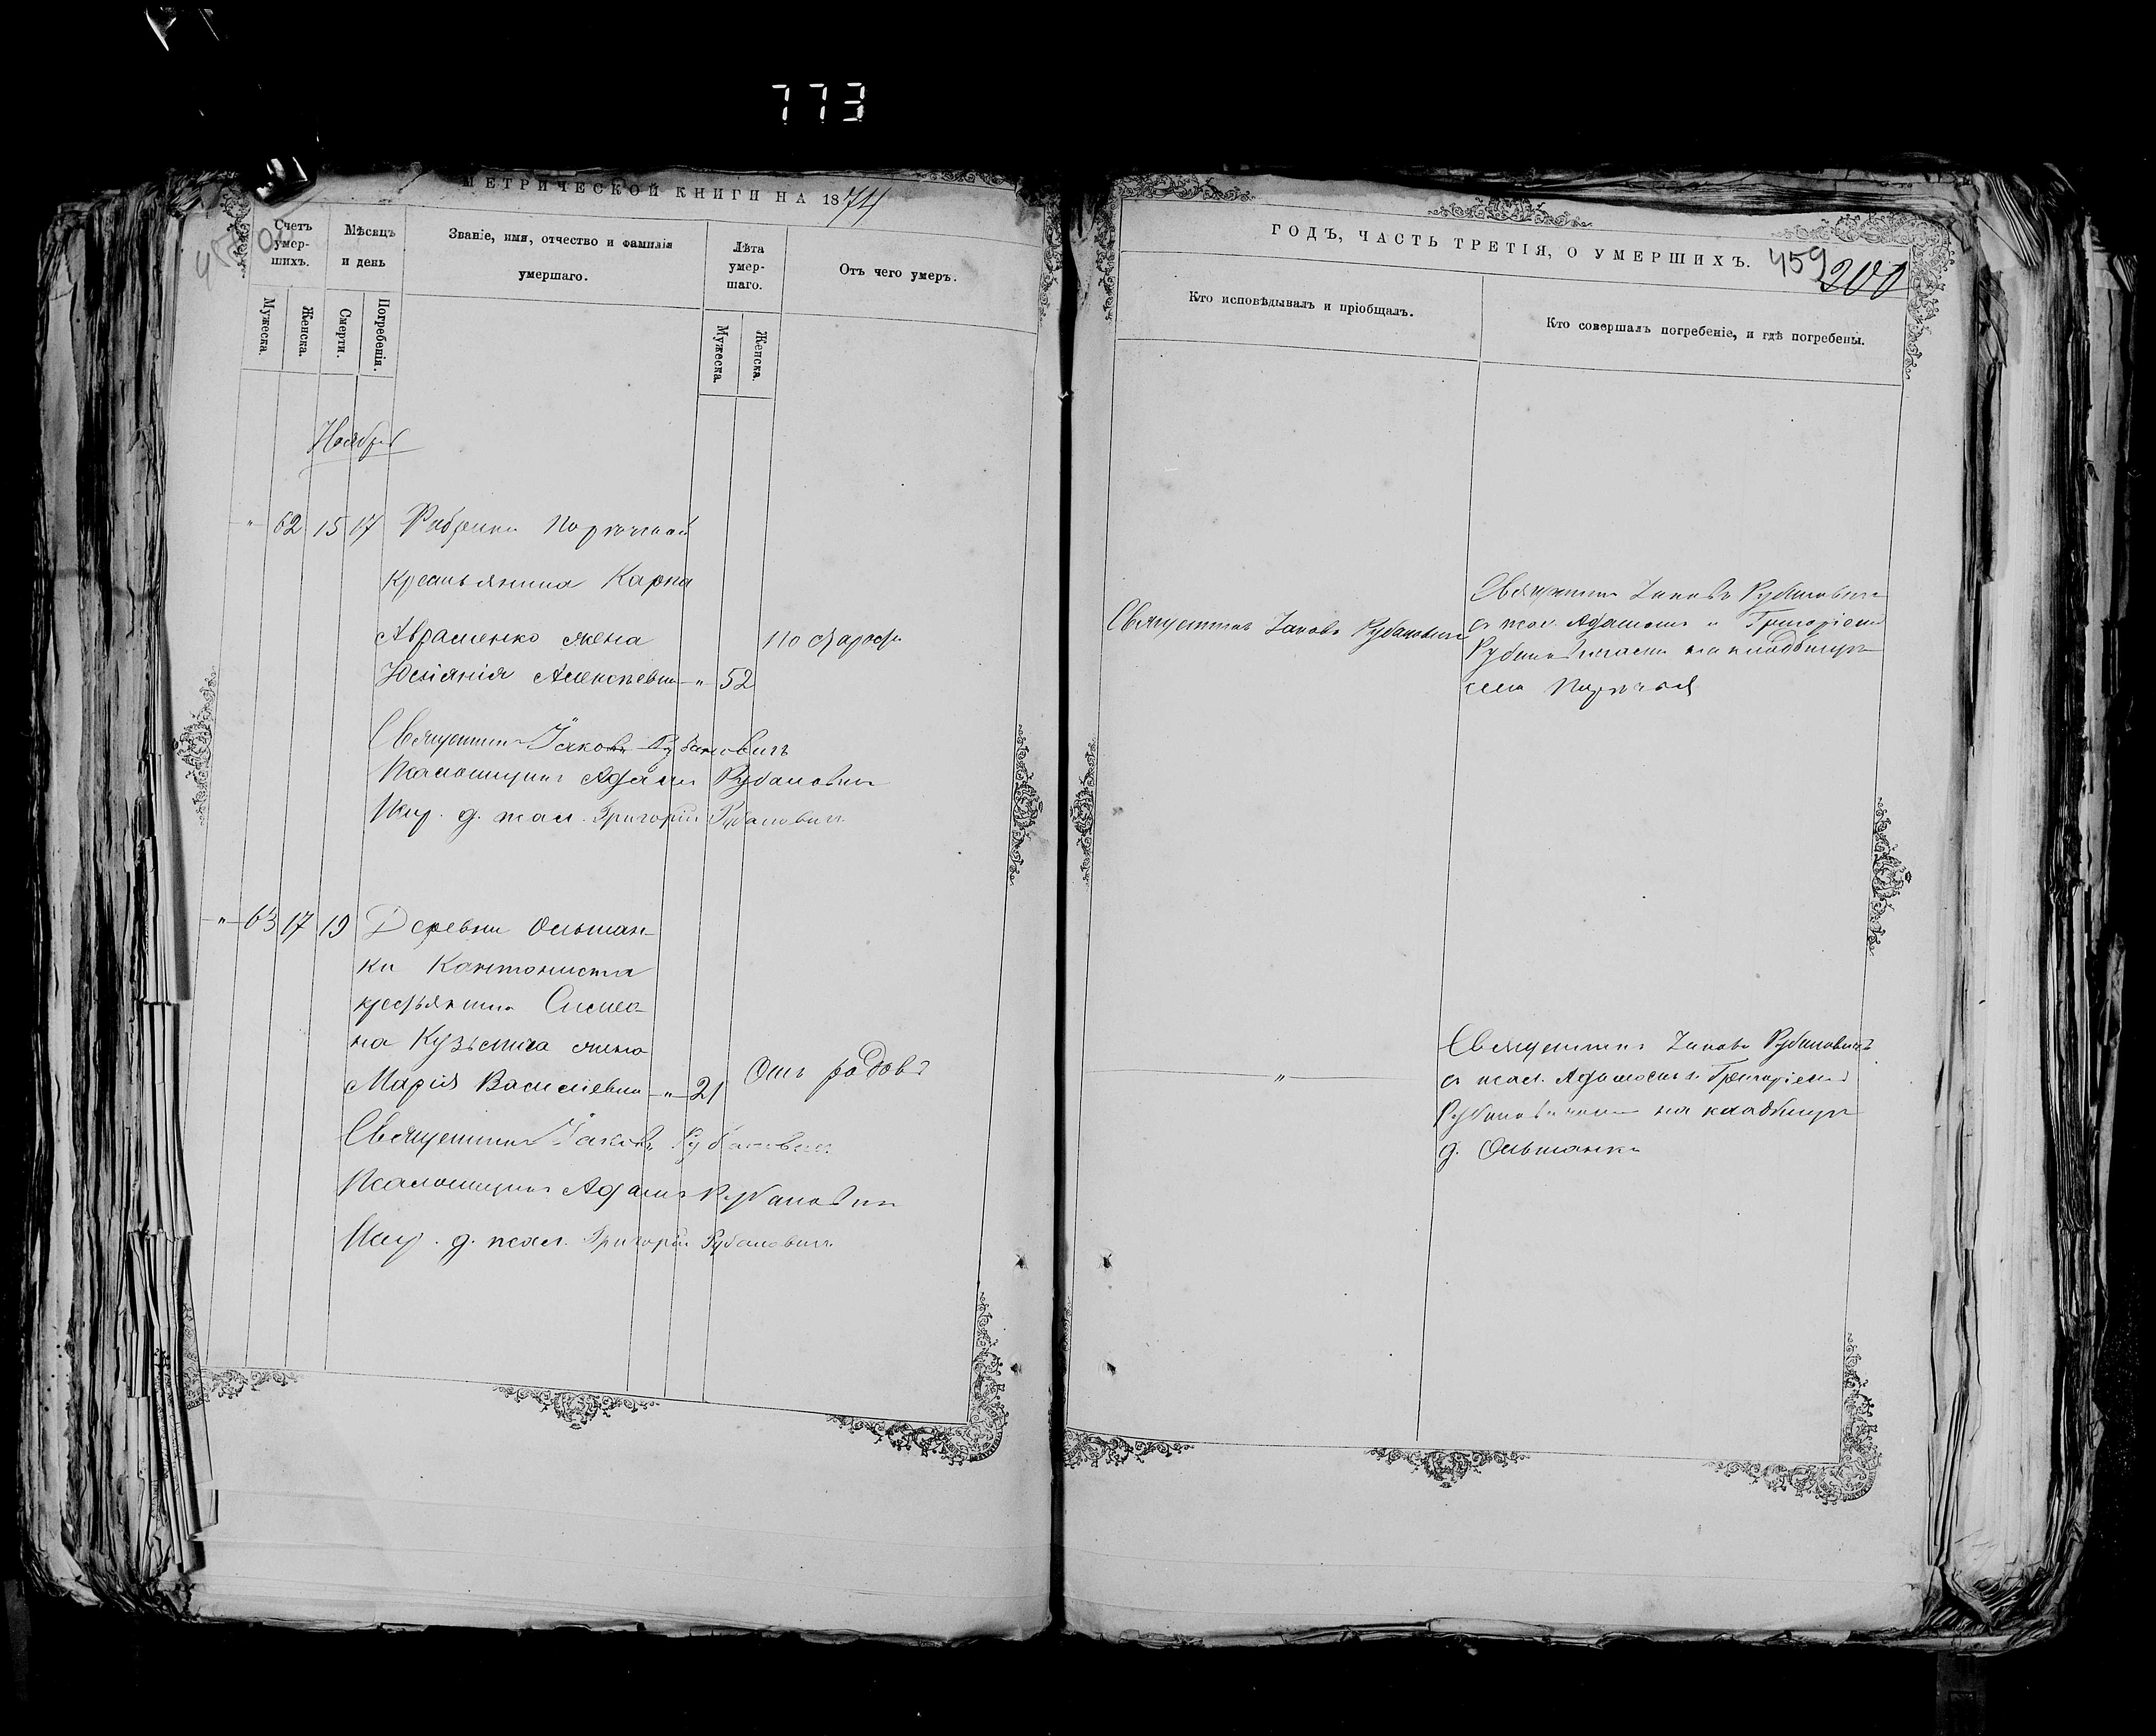 773
МЕТРИЧЕСКОЙ КНИГИ НА 1874
Счетъ умер-шихъ.
Мѣсяцъ и день
Званіе, имя, отчество и фамилія умершаго.
Лѣта умер-шаго.
Отъ чего умеръ.
Мужеска.
Женска.
Смерти.
Погребенія.
Мужеска.
Женска.
Ноябрь
" 62 15 17 Фабрики Поръчской
крестьянина Карпа
Авраменко жена
Аlексѣевна " 52
Священникъ Іаковъ Рубановичъ
Псаломщикъ Адамъ Рубановичъ
д. псал. Григорій Рубановичъ
" 63 17 19 Деревни Ольшан-
ки Кантониста
крестьянина Симео-
на Кузьмича жена
Марія Василіевна " 21
Отъ родовъ
Священникъ Іаковъ Рубановичъ
Псаломщикъ Адамъ Рубановичъ
д. псал. Григорій Рубановичъ
ГОДЪ, ЧАСТЬ ТРЕТІЯ, О УМЕРШИХЪ.
459
200
Кто исповѣдывалъ и пріобщалъ.
Кто совершалъ погребеніе, и гдѣ погребены.
Священникъ Іаковъ Рубановичъ
Священникъ Іаковъ Рубановичъ
съ псал. Адамомъ и Григоріемъ
Рубановичами на кладбищѣ
села
"
Священникъ Іаковъ Рубановичъ
съ псал. Адамомъ и Григоріемъ
Рубановичами на кладбищѣ
д. Ольшанки